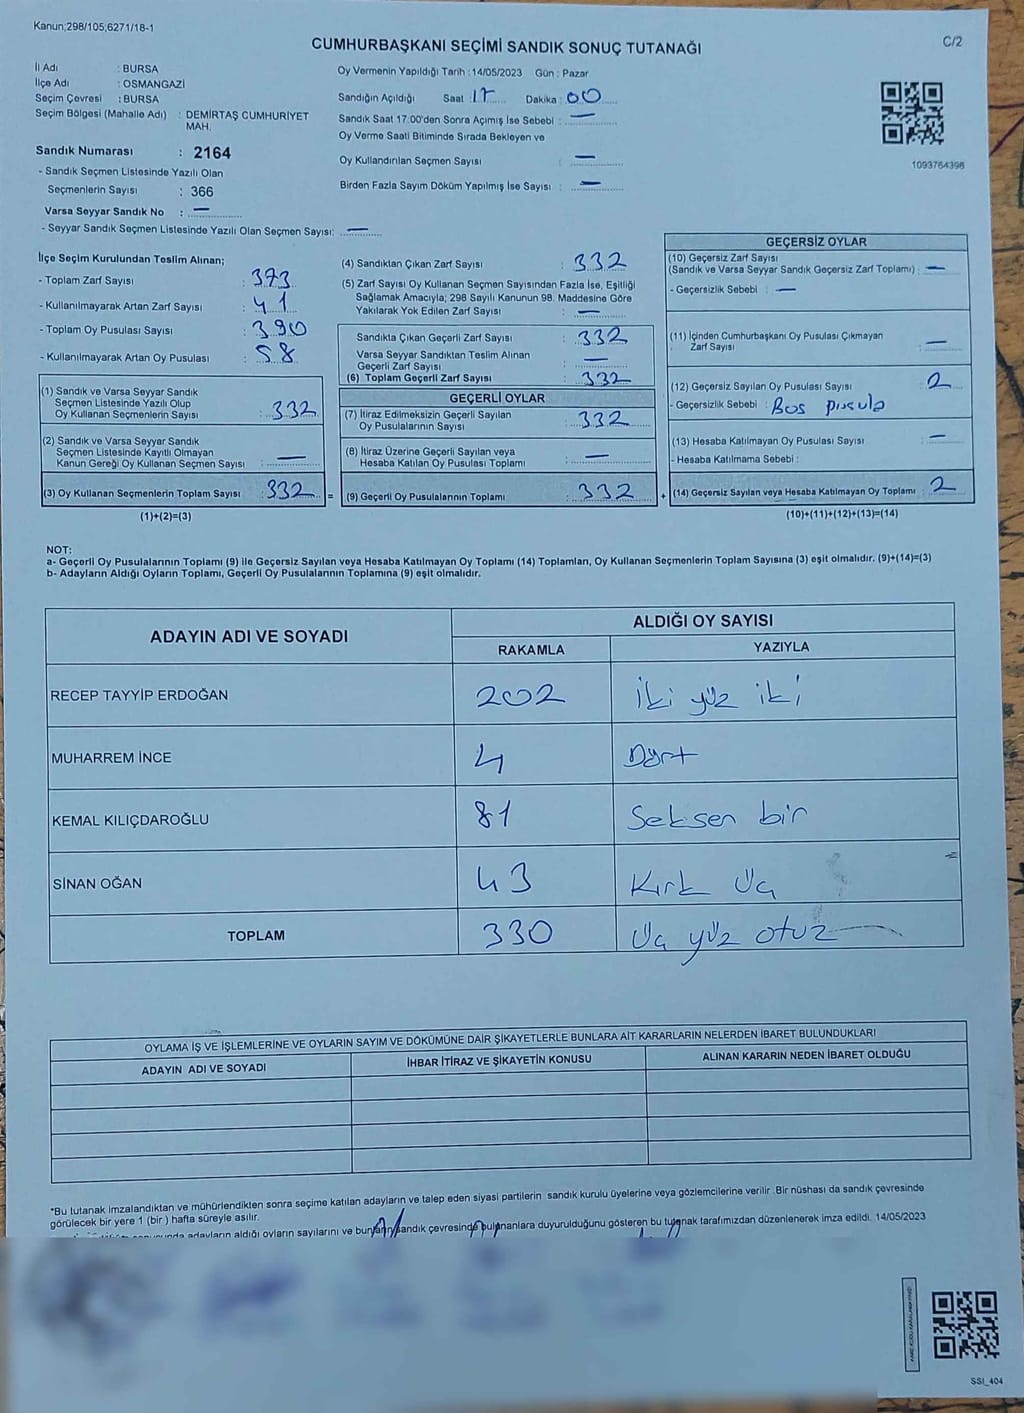 Kanun;298/105;6271/18-1
CUMHURBAŞKANI SEÇİMİ SANDIK SONUÇ TUTANAĞI
C/2
İl Adı : BURSA
İlçe Adı : OSMANGAZİ
Seçim Çevresi : BURSA
Seçim Bölgesi (Mahalle Adı) : DEMİRTAŞ CUMHURİYET
MAH.
Sandık Numarası : 2164
- Sandık Seçmen Listesinde Yazılı Olan
Seçmenlerin Sayısı : 366
Varsa Seyyar Sandık No : —
- Seyyar Sandık Seçmen Listesinde Yazılı Olan Seçmen Sayısı: —
Oy Vermenin Yapıldığı Tarih : 14/05/2023 Gün : Pazar
Sandığın Açıldığı Saat 17 Dakika : 00
Sandık Saat 17:00'den Sonra Açımış İse Sebebi : —
Oy Verme Saati Bitiminde Sırada Bekleyen ve
Oy Kullandırılan Seçmen Sayısı —
Birden Fazla Sayım Döküm Yapılmış İse Sayısı : —
1093764396
İlçe Seçim Kurulundan Teslim Alınan;
- Toplam Zarf Sayısı : 373
- Kullanılmayarak Artan Zarf Sayısı : 41
- Toplam Oy Pusulası Sayısı : 390
- Kullanılmayarak Artan Oy Pusulası : 58
(1) Sandık ve Varsa Seyyar Sandık
Seçmen Listesinde Yazılı Olup
Oy Kullanan Seçmenlerin Sayısı : 332
(2) Sandık ve Varsa Seyyar Sandık
Seçmen Listesinde Kayıtlı Olmayan
Kanun Gereği Oy Kullanan Seçmen Sayısı : —
(3) Oy Kullanan Seçmenlerin Toplam Sayısı : 332 =
(1)+(2)=(3)
(4) Sandıktan Çıkan Zarf Sayısı : 332
(5) Zarf Sayısı Oy Kullanan Seçmen Sayısından Fazla İse, Eşitliği
Sağlamak Amacıyla; 298 Sayılı Kanunun 98. Maddesine Göre
Yakılarak Yok Edilen Zarf Sayısı : —
Sandıkta Çıkan Geçerli Zarf Sayısı : 332
Varsa Seyyar Sandıktan Teslim Alınan
Geçerli Zarf Sayısı : —
(6) Toplam Geçerli Zarf Sayısı : 332
GEÇERLİ OYLAR
(7) İtiraz Edilmeksizin Geçerli Sayılan
Oy Pusulalarının Sayısı : 332
(8) İtiraz Üzerine Geçerli Sayılan veya
Hesaba Katılan Oy Pusulası Toplamı : —
(9) Geçerli Oy Pusulalarının Toplamı : 332 +
GEÇERSİZ OYLAR
(10) Geçersiz Zarf Sayısı
(Sandık ve Varsa Seyyar Sandık Geçersiz Zarf Toplamı) : —
- Geçersizlik Sebebi : —
(11) İçinden Cumhurbaşkanı Oy Pusulası Çıkmayan
Zarf Sayısı —
(12) Geçersiz Sayılan Oy Pusulası Sayısı : 2
- Geçersizlik Sebebi : Boş pusula
(13) Hesaba Katılmayan Oy Pusulası Sayısı : —
- Hesaba Katılmama Sebebi :
(14) Geçersiz Sayılan veya Hesaba Katılmayan Oy Toplamı : 2
(10)+(11)+(12)+(13)=(14)
NOT:
a- Geçerli Oy Pusulalarının Toplamı (9) ile Geçersiz Sayılan veya Hesaba Katılmayan Oy Toplamı (14) Toplamları, Oy Kullanan Seçmenlerin Toplam Sayısına (3) eşit olmalıdır. (9)+(14)=(3)
b- Adayların Aldığı Oyların Toplamı, Geçerli Oy Pusulalarının Toplamına (9) eşit olmalıdır.
ADAYIN ADI VE SOYADI
ALDIĞI OY SAYISI
RAKAMLA YAZIYLA
RECEP TAYYİP ERDOĞAN 202 iki yüz iki
MUHARREM İNCE 4 Dört
KEMAL KILIÇDAROĞLU 81 Seksen bir
SİNAN OĞAN 43 Kırk üç
TOPLAM 330 Üç yüz otuz
OYLAMA İŞ VE İŞLEMLERİNE VE OYLARIN SAYIM VE DÖKÜMÜNE DAİR ŞİKAYETLERLE BUNLARA AİT KARARLARIN NELERDEN İBARET BULUNDUKLARI
ADAYIN ADI VE SOYADI İHBAR İTİRAZ VE ŞİKAYETİN KONUSU ALINAN KARARIN NEDEN İBARET OLDUĞU
*Bu tutanak imzalandıktan ve mühürlendikten sonra seçime katılan adayların ve talep eden siyasi partilerin sandık kurulu üyelerine veya gözlemcilerine verilir .Bir nüshası da sandık çevresinde
görülecek bir yere 1 (bir ) hafta süreyle asılır.
adayların aldığı oyların sayılarını ve bunların sandık çevresinde bulunanlara duyurulduğunu gösteren bu tutanak tarafımızdan düzenlenerek imza edildi. 14/05/2023
SSI_404